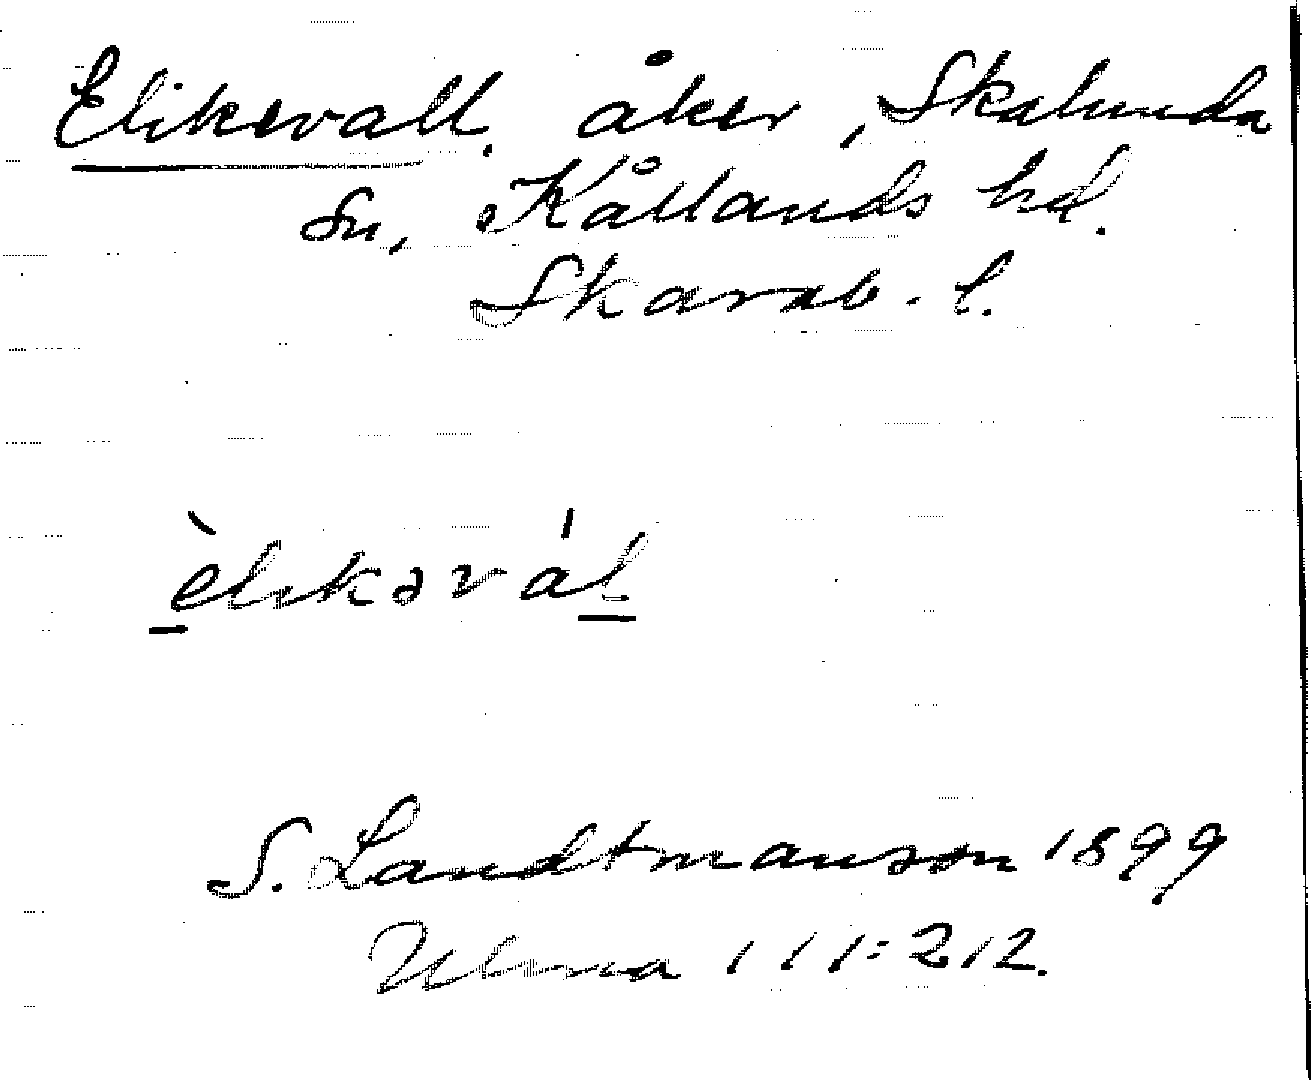 Elikevall, åker, Skalunda
Sn, Kållands hd.
Skarab. l.
èlikəvál
S. Landtmanson 1899
Ulma 111:212.